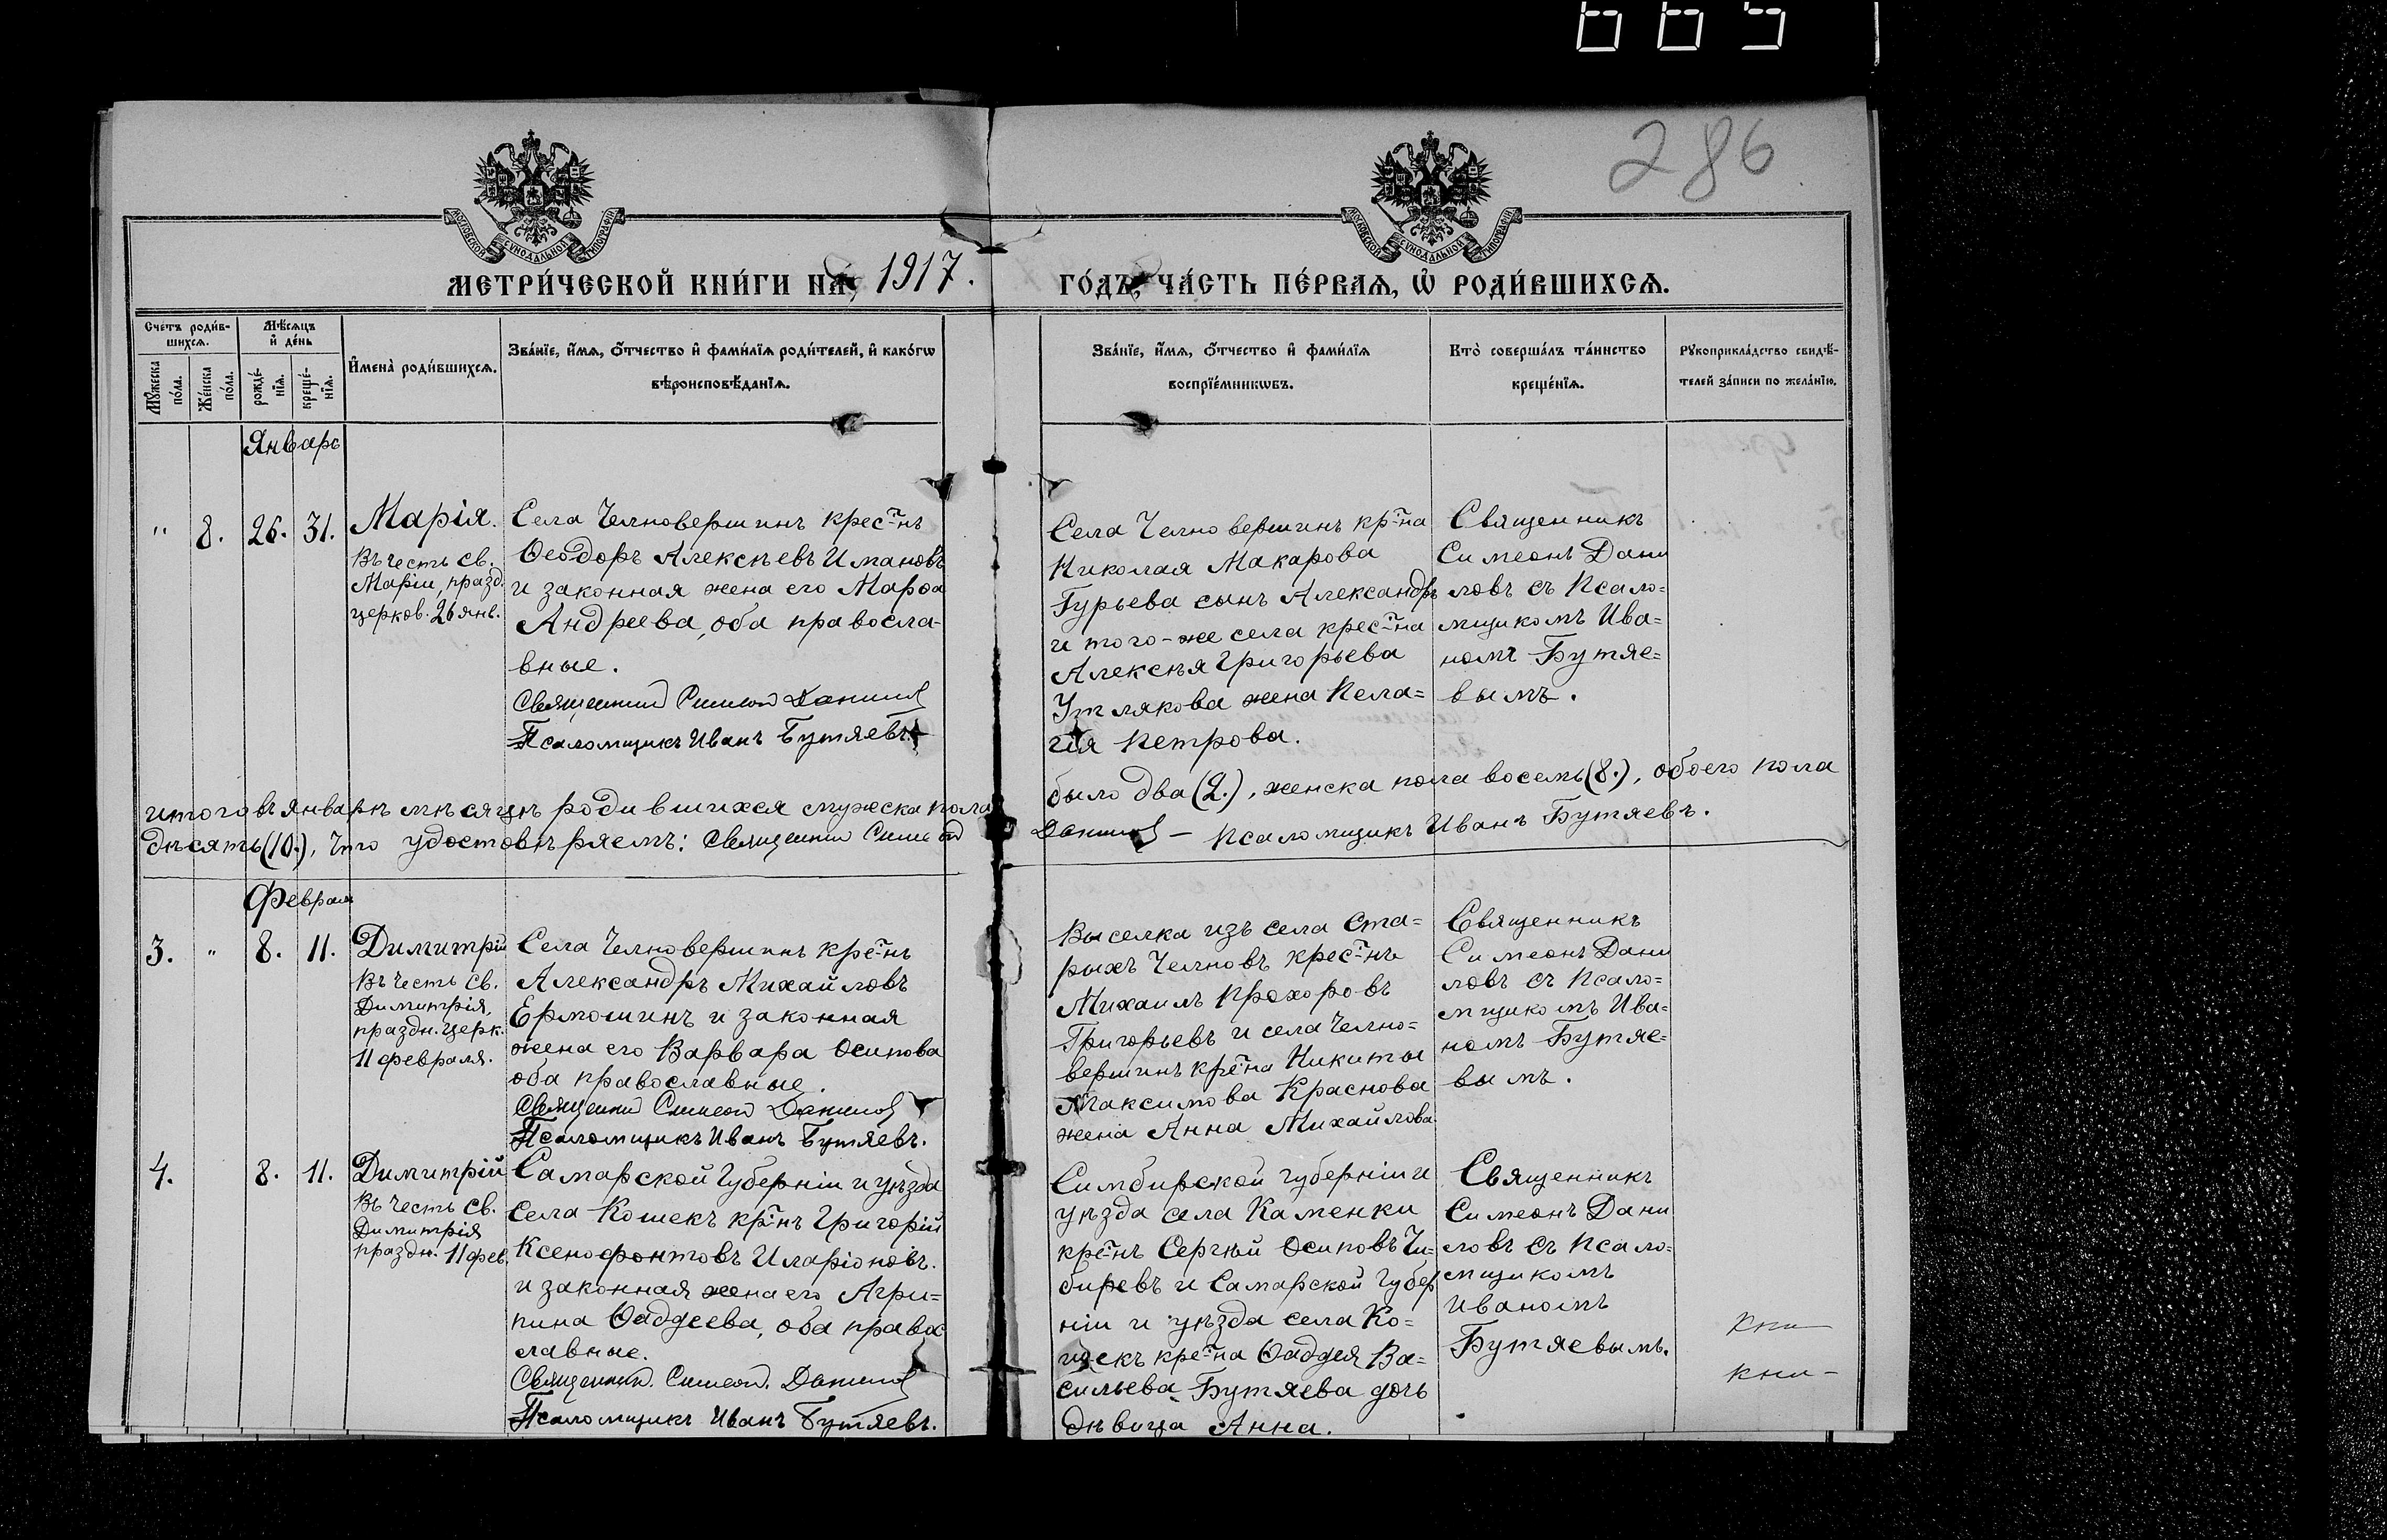 665
286
МОСКОВСКОЙ СѴНОДАЛЬНОЙ ТИПОГРАФІИ
МОСКОВСКОЙ СѴНОДАЛЬНОЙ ТИПОГРАФІИ
МЕТРИ́ЧЕСКОЙ КНИ́ГИ НА̀ 1917.
ГО́ДЪ, ЧА́СТЬ ПЕ́РВАѦ, Ѡ҆ РОДИ́ВШИХСѦ.
Сче́тъ роди́в-
шихсѧ.
Мꙋ́жеска
по́ла.
Же́нска
по́ла.
Мѣ́сѧцъ
и҆ де́нь
рожде́-
нїѧ.
креще́-
нїѧ.
И҆мена̀ роди́вшихсѧ.
Зва́нїе, и҆́мѧ, ѻ҆́тчество и҆ фами́лїѧ роди́телей, и҆ како́гѡ
вѣроисповѣ́данїѧ.
Зва́нїе, и҆́мѧ, ѻ҆́тчество и҆ фами́лїѧ
воспрїе́мникѡвъ.
Кто̀ соверша́лъ та́инство
креще́нїѧ.
Рꙋкоприкла́дство свидѣ́-
телей за́писи по жела́нїю.
Январь
" 8. 26. 31.
Марія.
Въ честь св.
Маріи, празд.
церков. 26 янв.
Села Челновершинъ крест-нъ
Ѳеодоръ Алексѣевъ Имановъ
и законная жена его Марѳа
Андреева, оба правосла-
вные.
Священник Симеон Данилов
Псаломщикъ Иванъ Бутяевъ.
Села Челновершинъ кр-на
Николая Макарова
Гурьева сынъ Александръ
и того-же села крест-на
Алексѣя Григорьева
Утлякова жена Пела=
гія Петрова.
Священникъ
Симеонъ Дани
ловъ съ Псало=
мщикомъ Ива=
номъ Бутяе=
вымъ.
итого въ январѣ мѣсяцѣ родившихся мужска пола было два (2.), женска пола восемь (8.), обоего пола
десять (10.), что удостовѣряемъ: Священник Симеон Данилов – Псаломщикъ Иванъ Бутяевъ.
Феврал
3. " 8. 11.
Димитрій
Въ честь св.
Димитрія,
праздн. церк.
11 февраля.
Села Челновершинъ кре-нъ
Александръ Михайловъ
Ермошинъ и законная
жена его Варвара Осипова
оба православные.
Священник Симеон Данилов
Псаломщикъ Иванъ Бутяевъ.
Выселка изъ села Ста=
рыхъ Челновъ крест-нъ
Михаилъ Прохоровъ
Григорьевъ и села Челно=
вершинъ кре-на Никиты
Максимова Краснова
жена Анна Михайлова.
Священникъ
Симеонъ Дани
ловъ съ Псало=
мщикомъ Ива=
номъ Бутяе=
вымъ.
4. 8. 11.
Димитрій
Въ честь св.
Димитрія
праздн. 11 фев.
Самарской Губерніи и уѣзда
Села Кошекъ кр-нъ Григорій
Ксенофонтовъ Иларіоновъ.
и законная жена его Агри=
пина Ѳаддеева, оба правос
лавные.
Священник. Симеон. Данилов
Псаломщикъ Иванъ Бутяевъ.
Симбирской губерніи и
уѣзда села Каменки
кре-нъ Сергѣй Осиповъ Чи=
биревъ и Самарской Губер
ніи и уѣзда села Ко=
шекъ кре-на Ѳаддея Ва=
сильева Бутяева дочь
дѣвица Анна.
Священникъ
Симеонъ Дани
ловъ съ Псало=
мщикомъ
Иваномъ
Бутяевымъ.